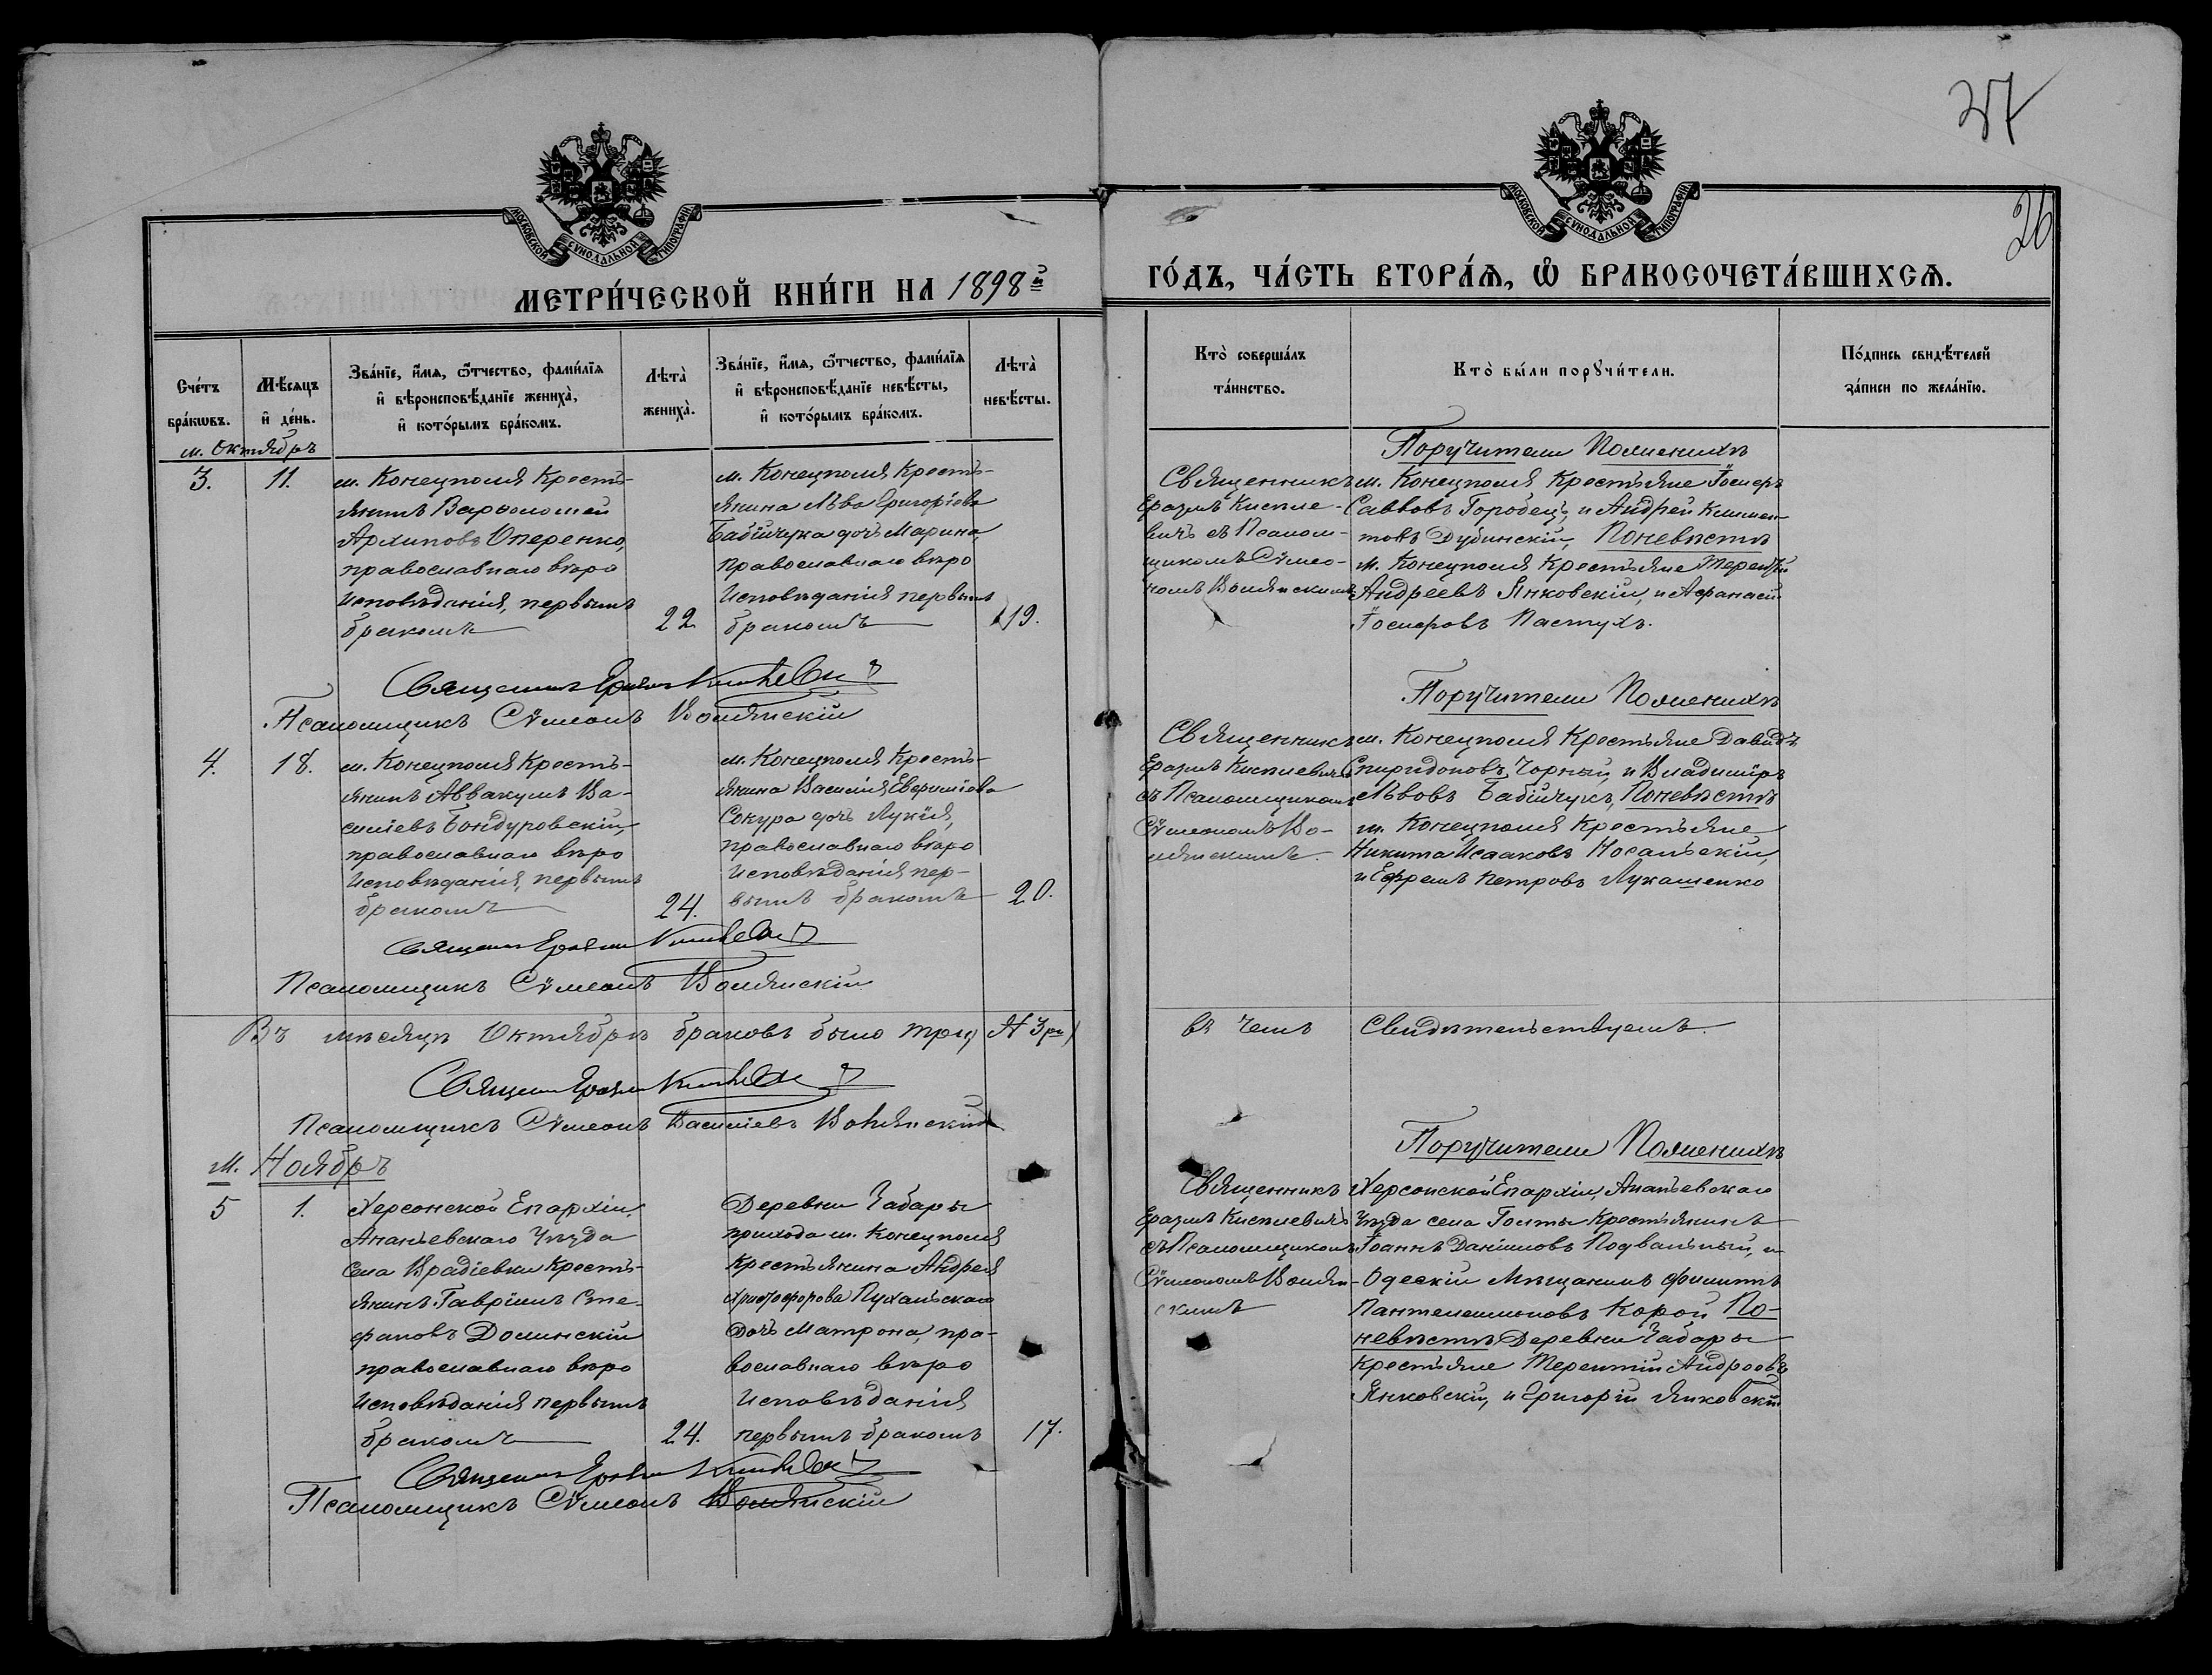 37
26
МОСКОВСКОЙ СѴНОДАЛЬНОЙ ТИПОГРАФІИ.
МОСКОВСКОЙ СѴНОДАЛЬНОЙ ТИПОГРАФІИ.
МЕТРИ́ЧЕСКОЙ КНИ́ГИ НА 1898й
ГО́ДЪ, ЧА́СТЬ ВТОРА́Ѧ, Ѽ БРАКОСОЧЕТА́ВШИХСѦ.
Сче́тъ бра́кѡвъ.
Мѣ́сѧцъ и҆ де́нь.
Зва́нїе, и҆́мѧ, ѻ҆́тчество, фами́лїѧ
и҆ вѣроисповѣ́данїе жениха̀,
и҆ кото́рымъ бра́комъ.
Лѣта̀ жениха̀.
Зва́нїе, и҆́мѧ, ѻ҆́тчество, фами́лїѧ
и҆ вѣроисповѣ́данїе невѣ́сты,
и҆ кото́рымъ бра́комъ.
Лѣта̀ невѣ́сты.
Кто̀ соверша́лъ та́инство.
Кто̀ бы́ли порꙋчи́тели.
По́дпись свидѣ́телей
за́писи по жела́нїю.
м. Октябрь
3.
11.
м. Конецполя Кресть-
янинъ Варѳоломей
Архиповъ Оперенко,
православнаго вѣро
исповѣданія, первымъ
бракомъ
22
м. Конецполя Кресть-
янина Льва Григоріева
Бабійчука дочь Марина,
православнаго вѣро
исповѣданія первымъ
бракомъ
19.
Священникъ
Еразмъ Кисіле-
вичъ съ Псалом-
щикомъ Сѵмео-
номъ Волянскимъ
Поручители По женихѣ
м. Конецполя Крестьяне Іосифъ
Саввовъ Городецъ, и Андрей Климен-
товъ Дубинскій, По невѣстѣ
м. Конецполя Крестьяне Терентій
Андреевъ Янковскій, и Афанасій
Іосифовъ Пастухъ.
Священникъ Еразмъ
Псаломщикъ Сѵмеонъ Волянскій
4.
18.
м. Конецполя Кресть-
янинъ Аввакумъ Ва-
силіевъ Бондуровскій,
православнаго вѣро
исповѣданія, первымъ
бракомъ
24.
м. Конецполя Кресть-
янина Василія Евфиміева
Сокура дочь Лукія,
православнаго вѣро
исповѣданія пер-
вымъ бракомъ
20.
Священникъ
Еразмъ Кисілевичъ
съ Псаломщикомъ
Сѵмеономъ Во-
лянскимъ.
Поручители По женихѣ
м. Конецполя Крестьяне Давидъ
Спиридоновъ Чорный и Владиміръ
Львовъ Бабійчукъ, По невѣстѣ
м. Конецполя Крестьяне
Никита Исааковъ Носальскій,
и Ефремъ Петровъ Лукашенко
Священ Еразмъ
Псаломщикъ Сѵмеонъ Волянскій
Въ мѣсяцѣ Октябрѣ браковъ было три, №
въ чемъ Свидѣтельствуемъ.
Священ Еразмъ
Псаломщикъ Сѵмеонъ Василіевъ Волянскій
м. Ноябрь
5
1.
Херсонской Епархіи,
Ананьевскаго Уѣзда
Села Врадіевки Кресть-
янинъ Гавріилъ Сте-
фановъ Долинскій
православнаго вѣро
исповѣданія первымъ
бракомъ
24.
Деревни Чабары
прихода м. Конецполя
Крестьянина Андрея
Христофорова Пухальскаго
Дочь Матрона, пра-
вославнаго вѣро
исповѣданія
первымъ бракомъ
17.
Священникъ
Еразмъ Кисілевичъ
съ Псаломщикомъ
Сѵмеономъ Волян-
скимъ
Поручители По женихѣ
Херсонской Епархіи, Ананьевскаго
Уѣзда села Голты Крестьянинъ
Іоаннъ Даніиловъ Подвальный, и
Одескій Мѣщанинъ Филиппъ
Пантелеимоновъ Корой По-
невѣстѣ Деревни Чабары
Крестьяне Терентій Андреевъ
Янковскій, и Григорій Янковскій
Священ Еразмъ
Псаломщикъ Сѵмеонъ Волянскій